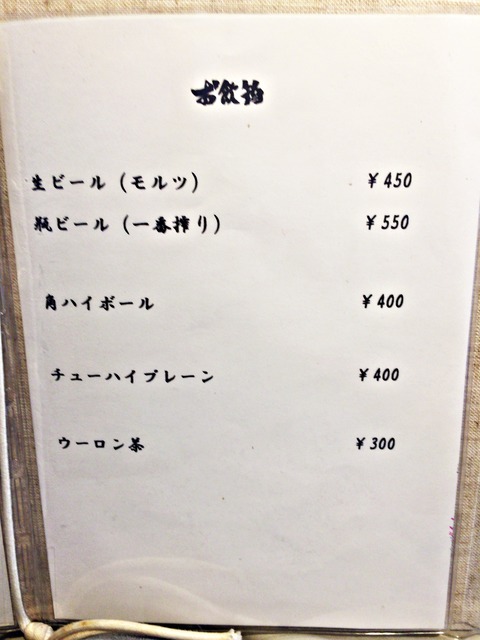 お飲物
生ビール（モルツ） ￥450
瓶ビール（一番搾り） ￥550
角ハイボール ￥400
チューハイプレーン ￥400
ウーロン茶 ￥300